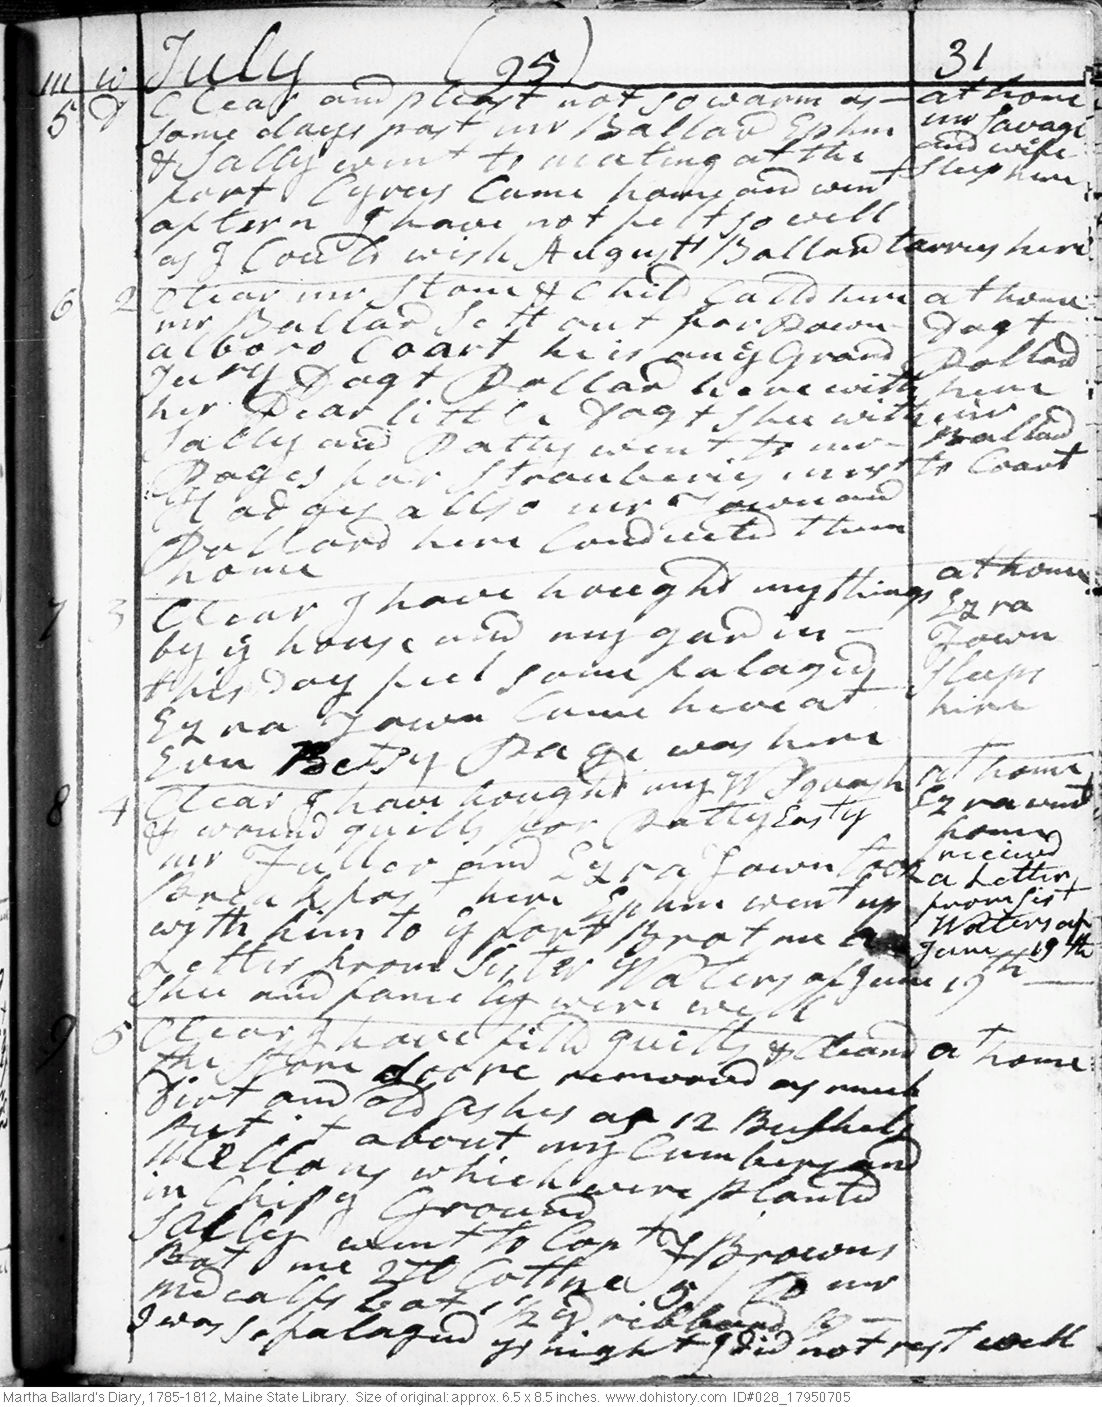 m w July (95) 31
5 D Clear and pleast not so warm as at home
some days past mr Ballard Ephm mr Savage
& Sally went to meeting at the and wife
fort Cyrus Came home and went sleep here
aftern I have not felt so well
as I Could wish August Ballard tarries here
6 2 Clear mr Stone & Child Calld here at home
mr Ballard sett out for Pown Dagt
alboro Coart he is on ye Grand Pollard
Jury Dagt Pollard here with here
her Dear little Dagt Shee with mr
Sally and Patty went to mr Ballard
Pages for Strauberies mrs to Coart
Hodges allso mr Town and
Pollard here Conducted them
home
7 3 Clear I have hought my things at home
by ye house and my gardin Ezra
this day feel some fatagud Town
Ezra Town Came here at sleeps
Evn Betsy Page was here here
8 4 Clear I have hought my W Squash at home
& wound quills for Patty Easty Ezra went
mr Fuller and Ezra Town took home
Breakfast here Ephm went up recievd
with him to ye fort Brot me a a Letter
Letter from Sister Waters of June 19th from Sist
Shee and family were well Waters of
June 19th
9 5 Clear I have filld quills & Cleand at home
the store doore removed as much
Dirt and old ashes as 12 Bushels
Put it about my Cumbers and
Mellons which were planted
in Chip ye Ground
Sally went to Capt J Browns
Bot me 2 lb Cottne 5/ to mr
Medcalfs Bot 1 1/2 yd ribband
I was so fatagud ys night I did not rest well
Martha Ballard's Diary, 1785-1812, Maine State Library. Size of original: approx. 6.5 x 8.5 inches. www.dohistory.com ID#028_17950705